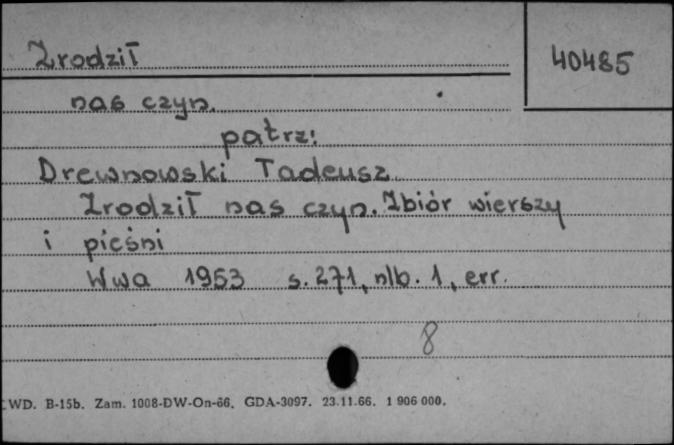 Zrodził
40485
nas czyn.
patrz:
Drewnowski Tadeusz
Zrodził nas czyn. Zbiór wierszy
i pieśni
Wwa 1953 s. 271, nlb. 1, err.
8
WD. B-15b. Zam. 1008-DW-On-66. GDA-3097. 23.11.66. 1 906 000.